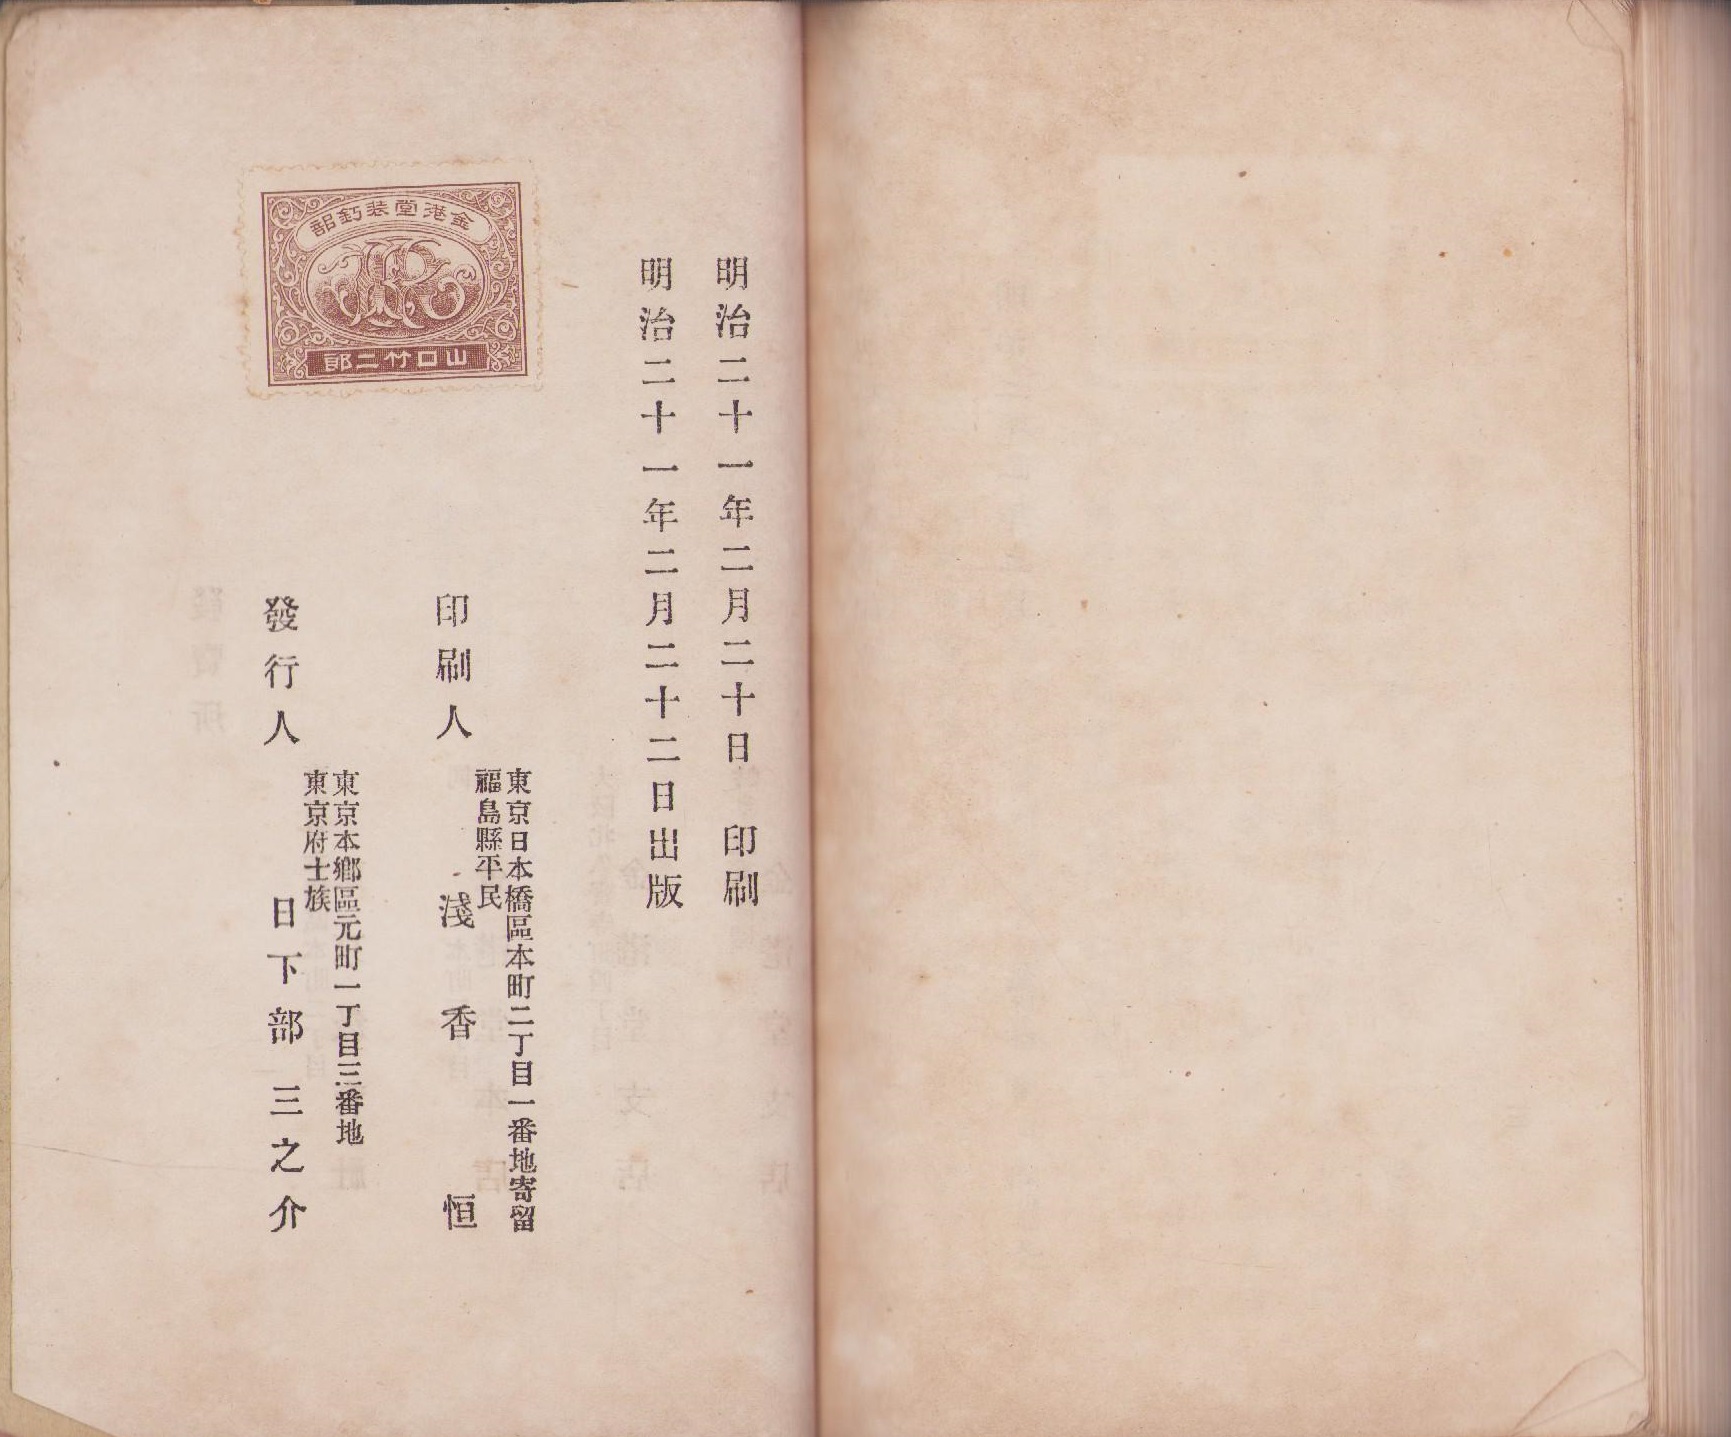 明治二十一年二月二十日印刷
明治二十一年二月二十二日出版
東京日本橋區本町二丁目一番地寄留
福島縣平民
印刷人 淺香恒
東京本鄉區元町一丁目三番地
東京府士族
發行人 日下部三之介
金港堂装釘部
山口竹二郎